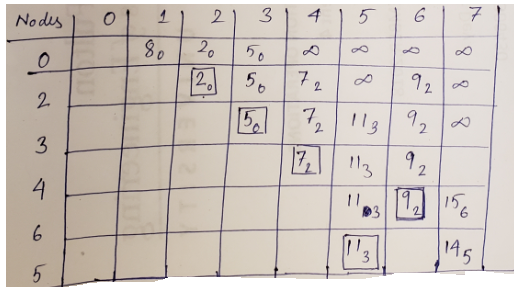 Nodes 0 1 2 3 4 5 6 7
0 8₀ 2₀ 5₀ ∞ ∞ ∞ ∞
2 2₀ 5₀ 7₂ ∞ 9₂ ∞
3 5₀ 7₂ 11₃ 9₂ ∞
4 7₂ 11₃ 9₂
6 11₃ 9₂ 15₆
5 11₃ 14₅